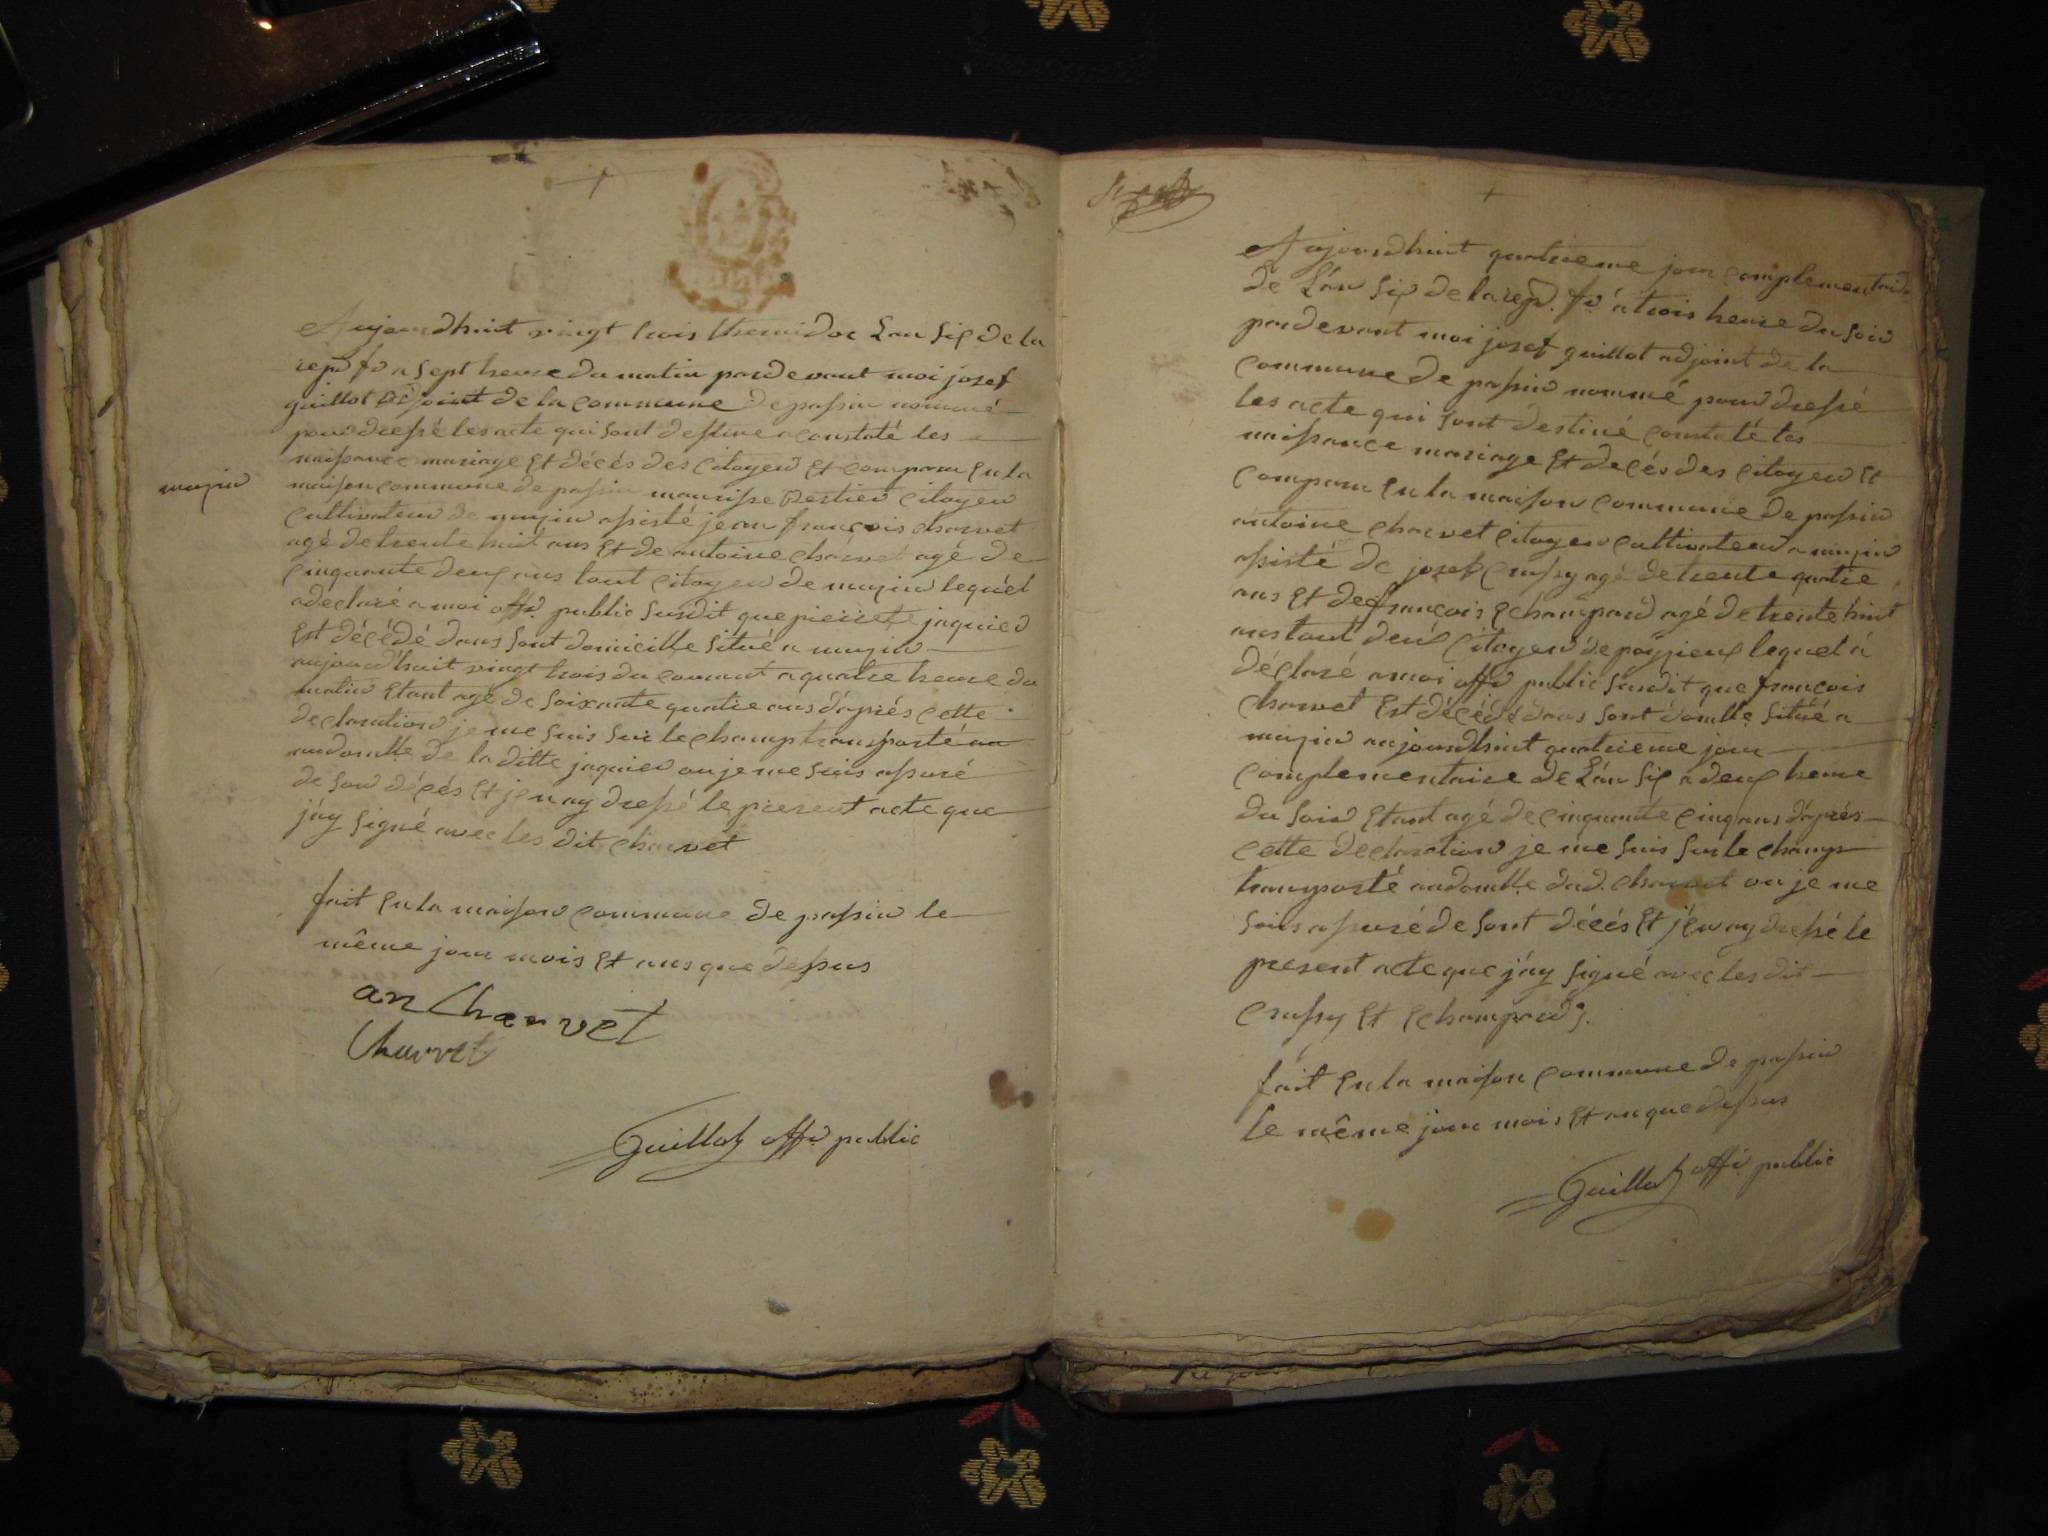 Aujourdhuit vingt trois thermidor Lan Six de la
repu fr a sept heure du matin pardevant moi josef
guillot adjoint de la commune de passin nommé
pour dressé les acte qui sont destiné a constaté les
naissance mariage Et décés des Citoyen Et comparu En la
maison commune de passin maurisse Citoyen
Cultivateur de muzin assisté jean françois charvet
agé de trente huit ans Et de antoine charvet agé de
Cinquante deux ans tout Citoyen de muzin lequel
a declaré a moi offi public susdit que pierrete jaquier
Est décédé dans sont domicille situé a muzin
aujourdhuit vingt trois du courant a quatre heure du
matin Etant agé de soixante quatre ans d'aprés cette
declaration je me suis sur le champ transporté au
au domlle de la ditte jaquier ou je me suis assuré
de son décés Et j'en ay dressé le present acte que
j'ay signé avec les dit charvet
fait En la maison commune de passin le
même jour mois Et ans que dessus
muzin
an Charvet
Charvet
Guillot offi public
Aujourdhuit quatrieme jour complementaire
de L'an Six de la repu. fr a trois heure du soir
pardevant moi josef guillot adjoint de la
commune de passin nommé pour dressé
les acte qui sont destiné constaté les
naissance mariage Et decés des Citoyen Et
comparu En la maison commune de passin
antoine charvet Citoyen cultivateur a muzin
assisté de josef Crussy agé de trente quatre
ans Et de françois Echampard agé de trente huit
ans tout deux Citoyen de poyzieux lequel a
déclaré a moi offi public susdit que françois
charvet Est décédé dans sont domlle situé a
muzin aujourdhuit quatrieme jour
complementaire de L'an Six a deux heure
du soir Etant agé de cinquante cinq ans d'aprés
cette declaration je me suis sur le champ
transporté au domlle dud. charvet ou je me
suis assuré de sont décés Et j'en ay dressé le
present acte que j'ay signé avec les dit
Crussy Et Echampard.
fait En la maison commune de passin
le même jour mois Et an que dessus
Guillot offi public